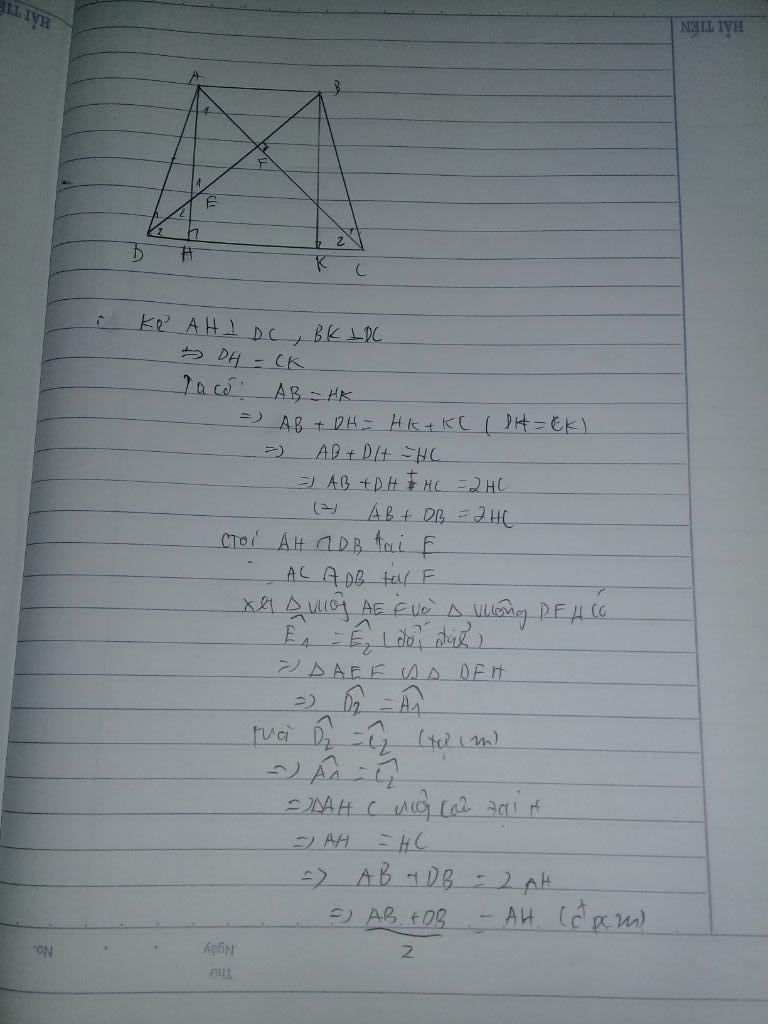 HẢI TIẾN
HẢI TIẾN
A
B
1
F
1
E
1
2
2
1
2
D
H
K
C
Kẻ AH ⊥ DC, BK ⊥ DC
=> DH = CK
Ta có: AB = HK
=> AB + DH = HK + KC (DH = CK)
=> AB + DH = HC
=> AB + DH + HC = 2HC
(=) AB + DB = 2HC
Gọi AH ∩ DB tại E
AC ∩ DB tại F
Xét Δ vuông AEF và Δ vuông DEH có
Ê1 = Ê2 (đối đỉnh)
=> Δ AEF ∽ Δ DEH
=> D̂2 = Â1
Mà D̂2 = Ĉ2 (tự cm)
=> Â1 = Ĉ2
=> ΔAHC vuông cân tại H
=> AH = HC
=> AB + DB = 2AH
=> AB + DB / 2 = AH (đpcm)
No.
Ngày
Thứ